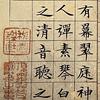 有羃翠庭神
人彈素琴白
之清音聽之